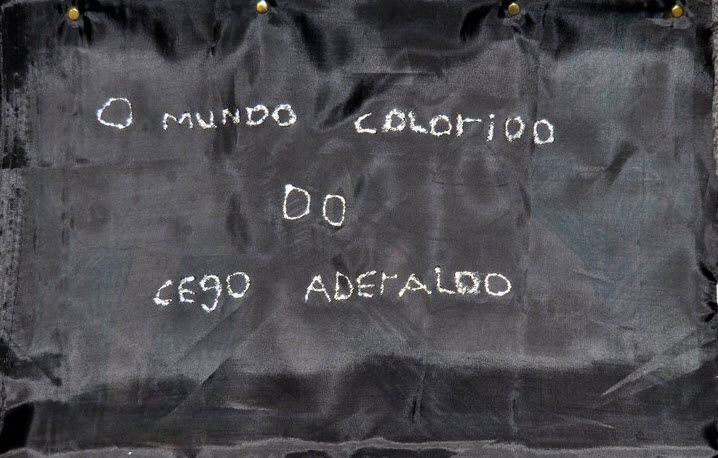 O MUNDO COLORIDO
DO
CEGO ADERALDO